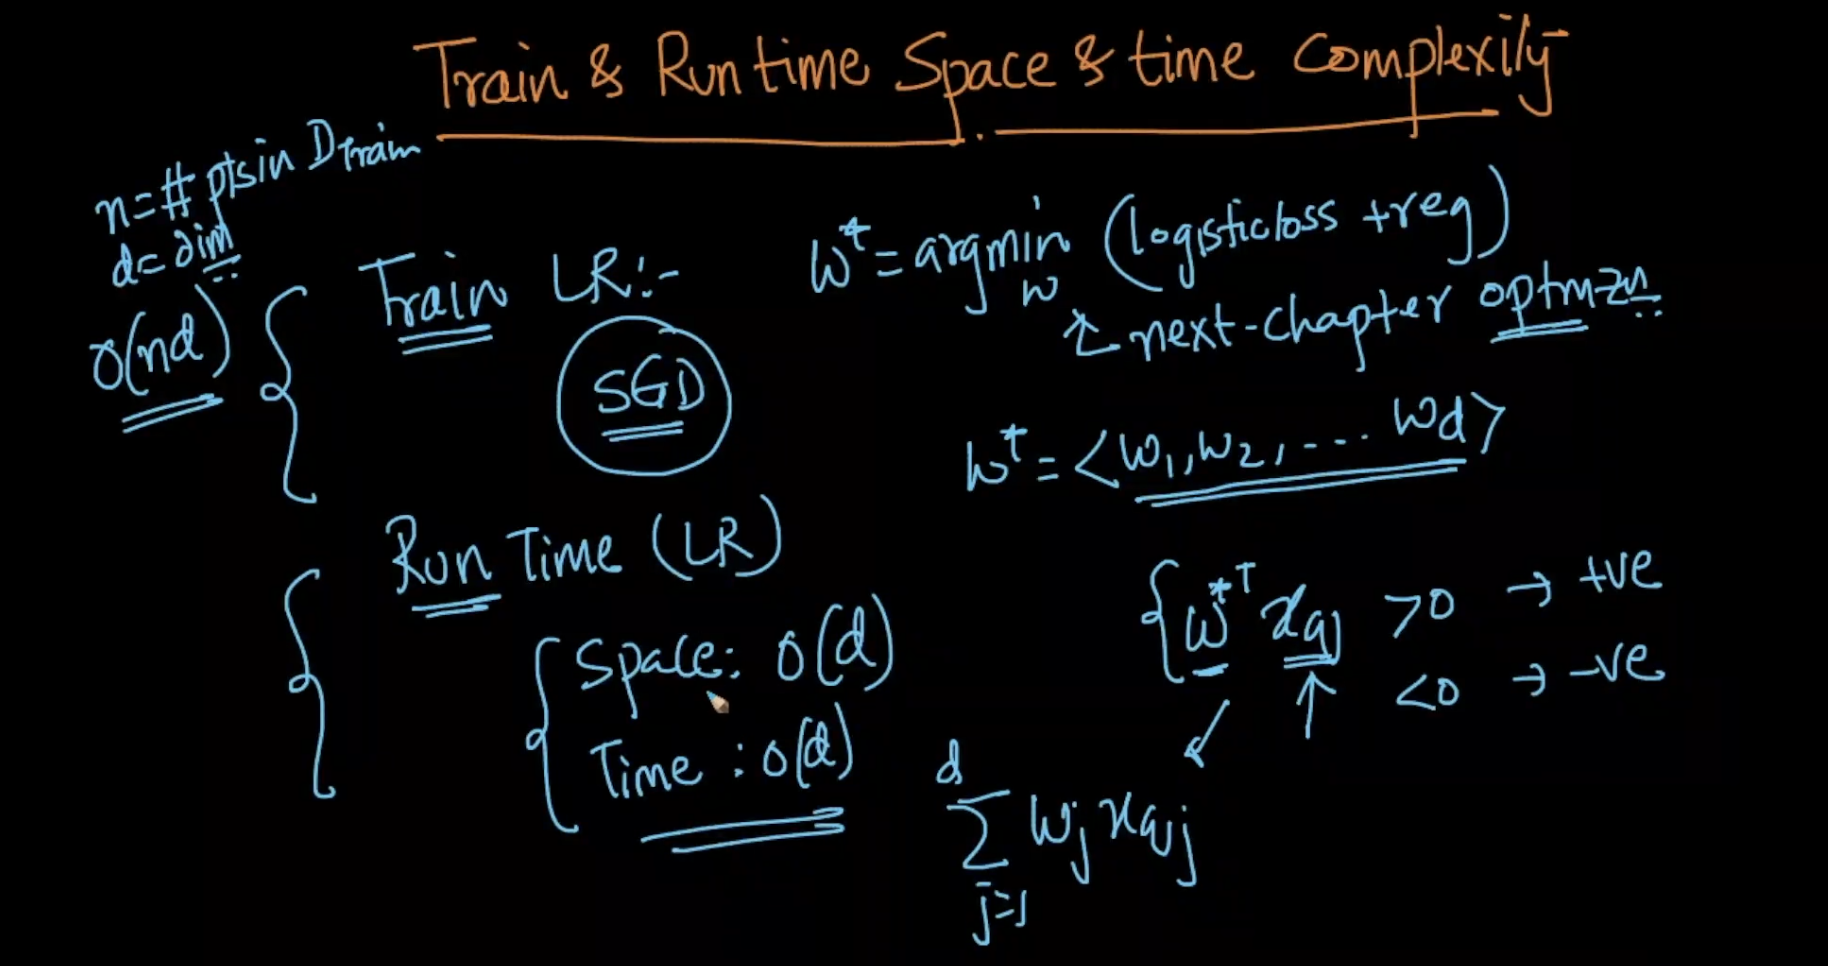 Train & Run time Space & time Complexity
n = # pts in Dtrain
d = dim
O(nd)
Train LR:-
SGD
w* = argmin (logistic loss + reg)
w
next-chapter optmzn
w* = <w1, w2, .... wd>
Run Time (LR)
Space: O(d)
Time : O(d)
w*T xq >0 → +ve
<0 → -ve
d
Σ wj xqj
j=1